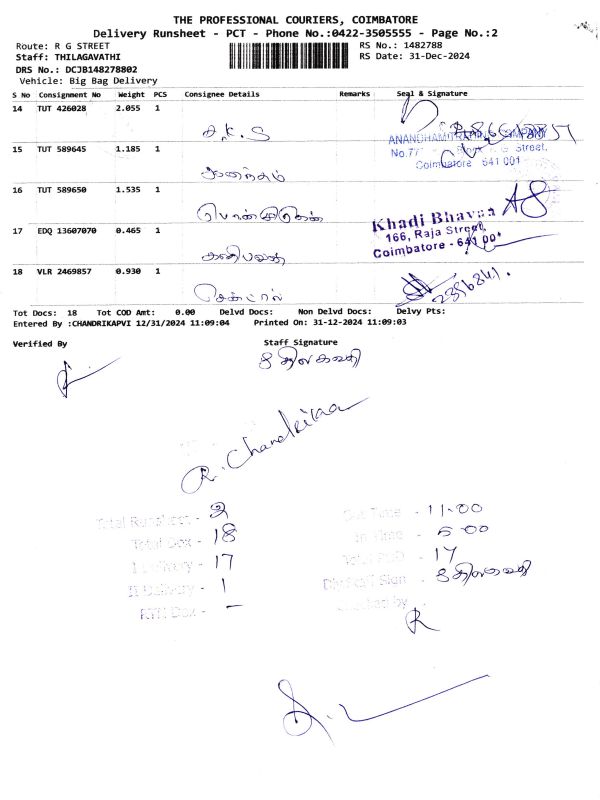 THE PROFESSIONAL COURIERS, COIMBATORE
Delivery Runsheet - PCT - Phone No.:0422-3505555 - Page No.:2
Route: R G STREET
RS No.: 1482788
Staff: THILAGAVATHI
RS Date: 31-Dec-2024
DRS No.: DCJB148278802
Vehicle: Big Bag Delivery
S No Consignment No Weight PCS Consignee Details Remarks Seal & Signature
14 TUT 426028 2.055 1
ANANDHAM COMPANY
15 TUT 589645 1.185 1
No.77 Street,
Coimbatore 641 001
ஆனந்தம்
16 TUT 589650 1.535 1
Khadi Bhavan
166, Raja Street,
17 EDQ 13607070 0.465 1
Coimbatore - 641 001
18 VLR 2469857 0.930 1
2396841.
Tot Docs: 18 Tot COD Amt: 0.00 Delvd Docs: Non Delvd Docs: Delvy Pts:
Entered By :CHANDRIKAPVI 12/31/2024 11:09:04 Printed On: 31-12-2024 11:09:03
Verified By Staff Signature
R. Chandrikaa
Total Runsheet - 2
Out Time - 11-00
Total Dox - 18
In Time - 5-00
I Delivery - 17
Total POD - 17
II Delivery - 1
Sign -
RTN Dox - -
by -
R